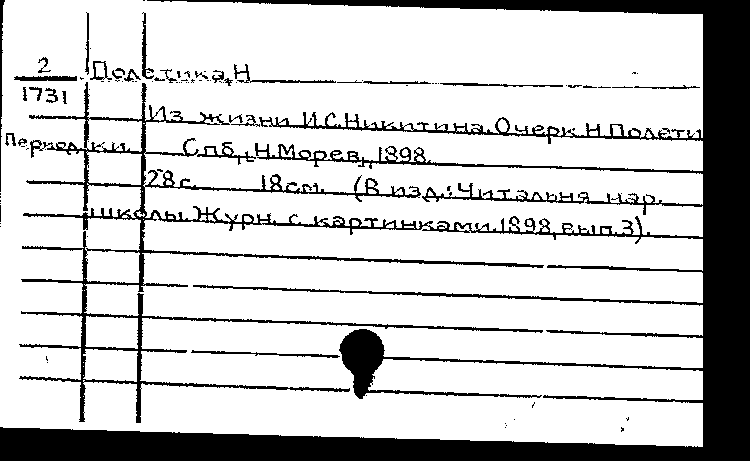 2
Полетика, Н
1731
Из жизни И.С.Никитина. Очерк Н.Полети
Период ки. Спб, Н.Морев, 1898.
28с. 18см. (В изд.: Читальня нар.
школы. Журн. с картинками. 1898, вып.3).